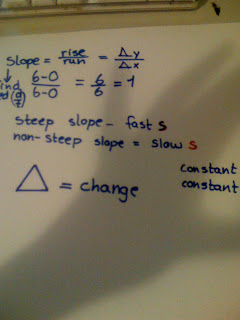 slope = rise/run = Δy/Δx
6-0/6-0 = 6/6 = 1
steep slope - fast s
non-steep slope = slow s
△ = change
constant
constant